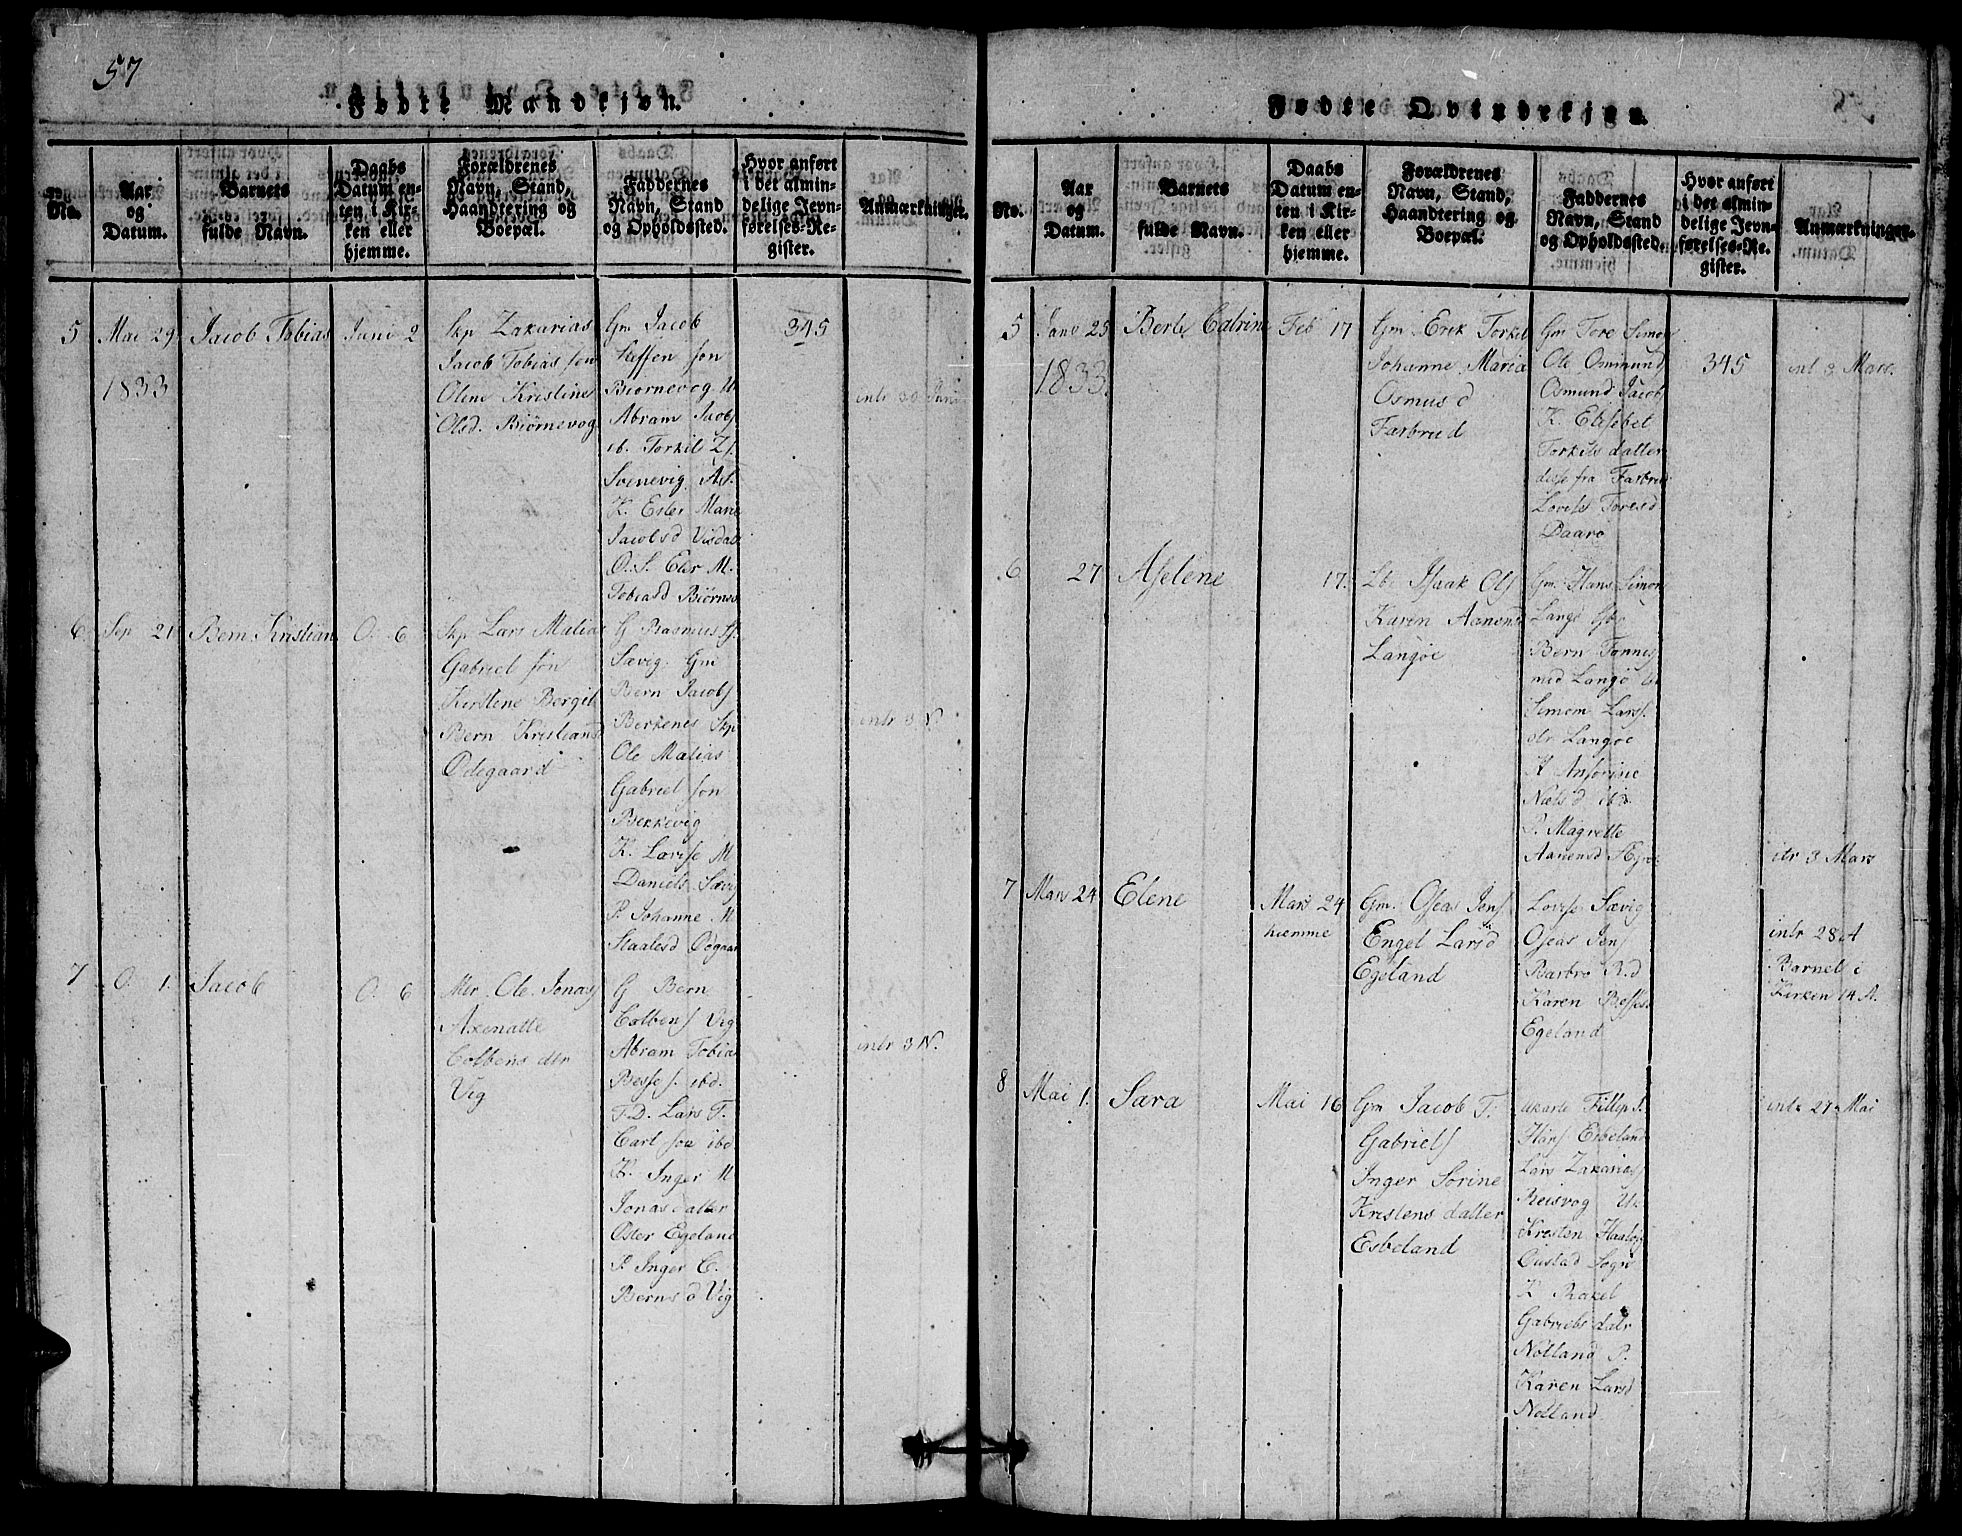 57
Fødte Mandkjøn.
No.
Aar
og
Datum.
Barnets
fulde Navn.
Daabs
Datum en-
ten i Kir-
ken eller
hjemme.
Forældrenes
Navn, Stand,
Haandtering og
Boepæl.
Faddernes
Navn, Stand
og Opholdssted.
Hvor anført
i det almin-
delige Jevn-
førelses-Re-
gister.
Anmærkninger.
5
Mai 29
1833
Jacob Tobias
Juni 2
Skp Zakarias
Jacob Tobias søn
Olene Kristine
Olsd. Biørnevog
Gm Jacob
Steffen søn
Biørnevog U
Abram Jacobs
ib. Torkil Zs.
Svenevig
K. Ester Marie
Jacobsd Visdal
O. S. Eler M.
Tobiasd Biørnev
345
intr 30 Juni
6
Sep 21
Bern Kristian
O. 6
Skp Lars Matias
Gabriel søn
Kirstene Bergit
Bern Kristians
Odegaard
G Rasmus
Sævig. Gm
Bern Jacobs
Berkenes Skp
Ole Matias
Gabriel søn
Bekkevig
K. Lovise M
Daniels Sævig
P. Johanne M
Staalesd Odgaar
intr 3 N
7
O. 1.
Jacob
O. 6
Mtr. Ole Jonas
Axenatte
Colbens dtr
Vig
G Bern
Colbens Vig
Abram Tobia
Besses. ibd.
T.D. Lars T.
Carl søn ibd
K. Inger M
Jonas datter
Oster Egeland
P. Inger C.
Berns d Vig
intr 3 N.
Fødte Qvindekjøn.
No.
Aar
og
Datum.
Barnets
fulde Navn.
Daabs
Datum en-
ten i Kir-
ken eller
hjemme.
Forældrenes
Navn, Stand,
Haandtering og
Boepæl.
Faddernes
Navn, Stand
og Opholdssted.
Hvor anført
i det almin-
delige Jevn-
førelses-Re-
gister.
Anmærkninger.
5
Janv 25
1833.
Berte Catrine
Feb 17
Gm Erik Torkil
Johanne Maria
Osmus d
Farbrud
Gm Tore Simon
Ole Ommund
Osmund Jacob
K. Elisebet
Torkils datter
disse fra Farbrud
Lovise Toresd
Daarø
345
int 3 Mars.
6
27
Aselene
17.
Isaak Ols
Karen Aanens
Langøe
Gm. Hans Simon
Langø
Bern Tønnes
med Langø
Simom Lars.
Langøe
K Ansorine
Niels d ibd
P. Magrette
Aanensd
itr 3 Mars
7
Mars 24
Elene
Mars 24
hiemme
Gm. Oseas Jens
Engel Larsd
Egeland
Lovise Sævig
Oseas Jens
Barbro R.d
Karen Bessesd
Egeland
intr 28 A
Barnet i
Kirken 14 A.
8
Mai 1.
Sara
Mai 16
Gm Jacob T.
Gabriels
Inger Sorine
Kristens datter
Esbeland
Fillip J.
Hans Esbeland
Lars Zakarias
Reisvog U.
Kresten Haalø
Oustad Sogn
K Rakel
Gabriels datr
Nøtland P.
Karen Larsd
Nøtland.
intr 27 Mai